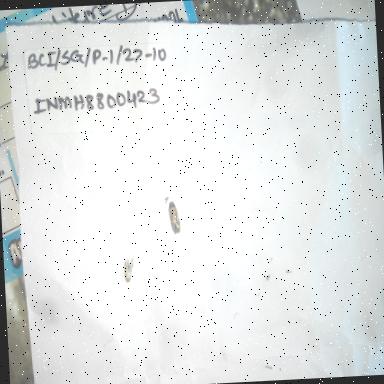 BCI/SG/P-1/27-10
INMHB800423